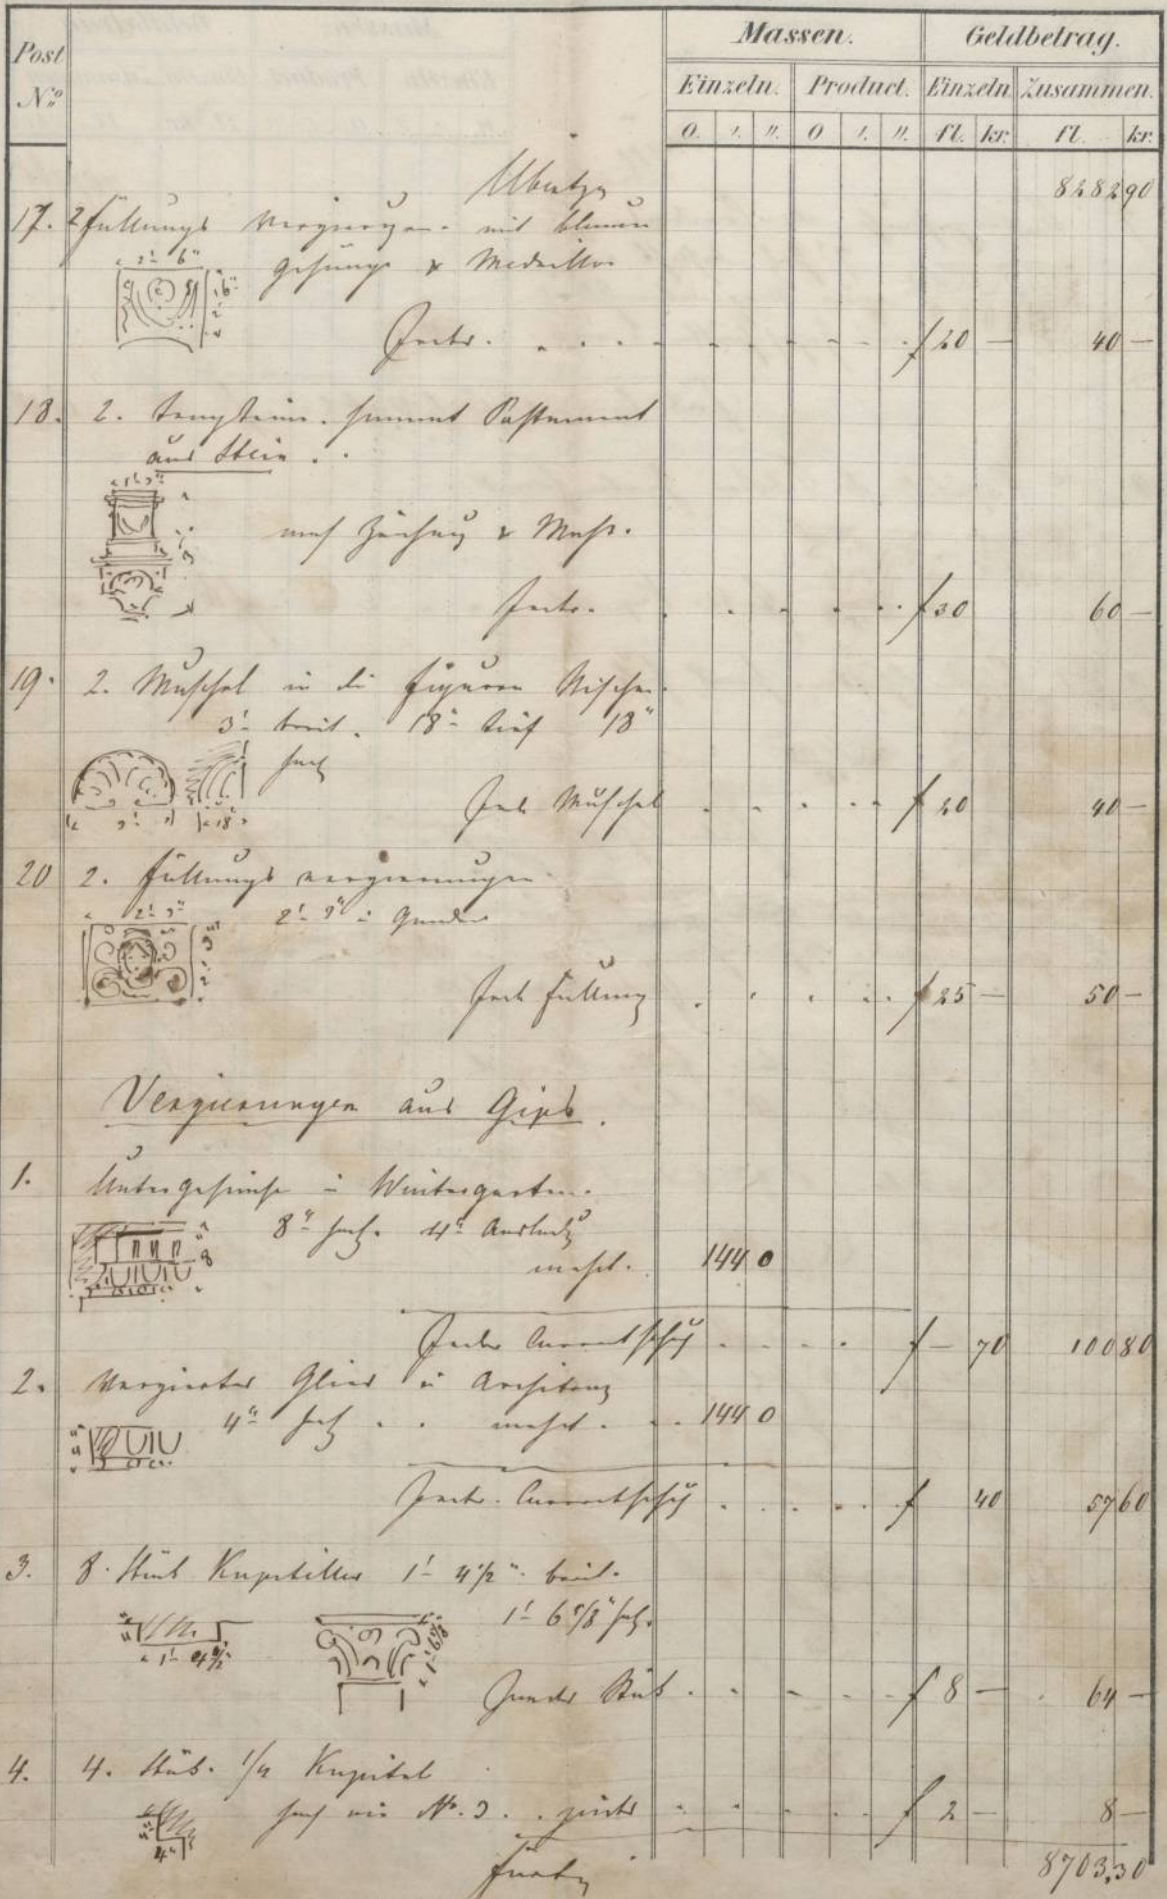 Post
No.
Massen.
Geldbetrag.
Einzeln.
Product.
Einzeln
Zusammen.
0. '. ''. 0 '. ''. fl. kr. fl. kr.
Übertrag 8282 90
17. 2 Füllungs Verzierungen mit Blumen
gehänge & Medaillon
2' 6"
2' 6"
Jede. f 20 — 40 —
18. 2. sammt Postament
aus Stein
nach Zeichnung & Mass.
Jede. f 30 60 —
19. 2. Muschel in die Figuren Nischen
3' breit. 18" tief 18"
hoch
3' 18"
Jede Muschel f 20 40 —
20 2. Füllungs verzierungen
2' 9" im Quadrat
2' 9"
2' 9"
Jede Füllung f 25 — 50 —
Verzierungen aus Gips.
1. Untergesimse im Wintergarten.
8" hoch. 4" Ausladung
8
misst. 144 0
Jeder Currentschuh f — 70 100 80
2. Verziertes Glied im Architrav
4" hoch misst. 144 0
4"
Jeder Currentschuh f 40 57 60
3. 8. Stück Kapitäler 1' 4 1/2" breit.
1' 6 5/8" hoch.
1' 4 1/2"
1' 6 5/8
Jedes Stück f 8 — 64 —
4. 4. Stück 1/4 Kapitäl
hoch wie No. 3. f 2 — 8 —
4"
Fürtrag 8703,30